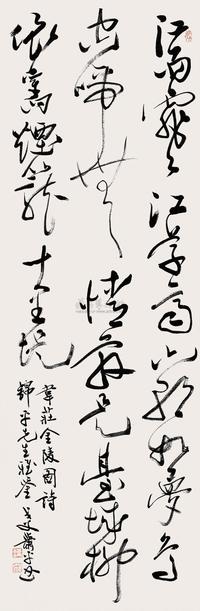 江雨霏々江草齊六朝如夢鳥
空啼無情最是臺城柳
依舊煙籠十里堤
韋莊金陵圖詩
錦平先生雅鑒